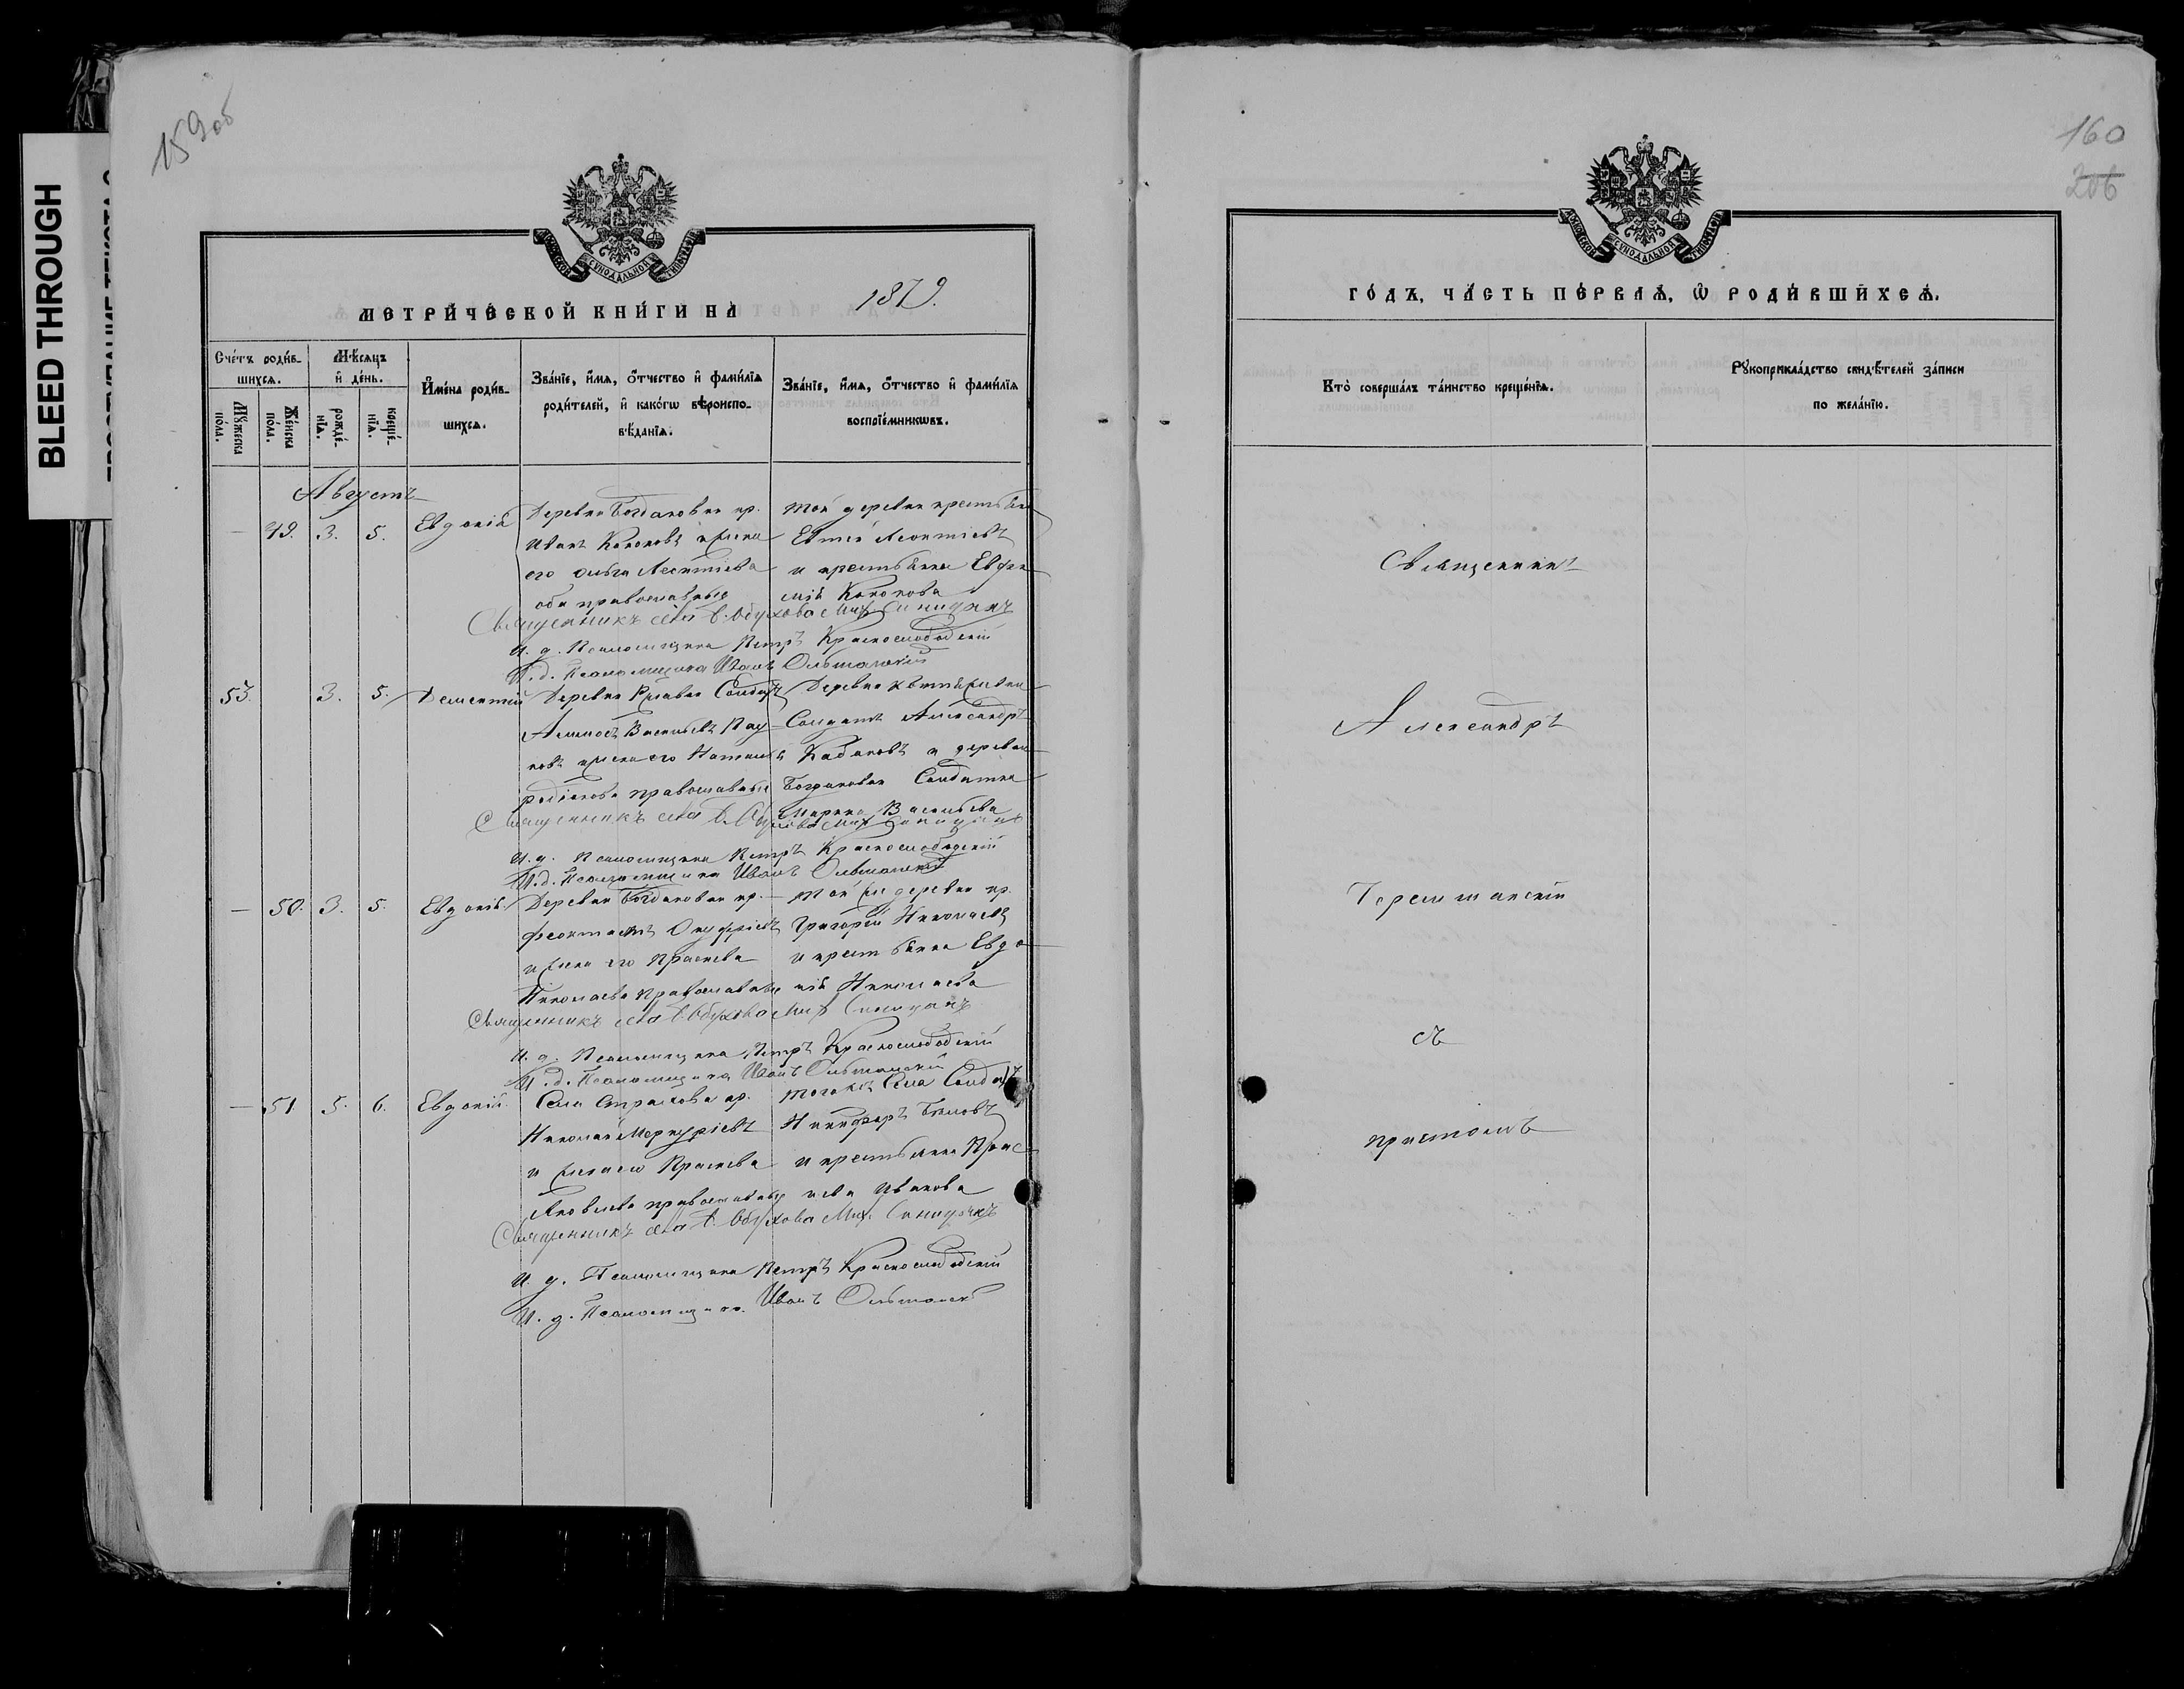 159об
160
206
BLEED THROUGH
МОСКОВСКОЙ СѴНОДАЛЬНОЙ ТИПОГРАФІИ
МЕТРИ́ЧЕСКОЙ КНИ́ГИ НА 1879.
Сче́тъ роди́в-
шихсѧ.
Мѣ́сѧцъ
и҆ де́нь.
И҆мена̀ роди́в-
шихсѧ.
Зва́нїе, и҆́мѧ, ѻ҆́тчество и҆ фамі́лїѧ
роди́телей, и҆ како́гѡ вѣроиспо-
вѣ́данїѧ.
Зва́нїе, и҆́мѧ, ѻ҆́тчество и҆ фамі́лїѧ
воспрїе́мникѡвъ.
Мꙋ́жеска по́ла.
Же́нска по́ла.
рожде́-нїѧ.
креще́-нїѧ.
Августъ
— 49. 3. 5. Евдокія
Деревни Богдановки кр.
Иванъ Кононовъ и жена
его Ольга Леонтіева
оба православные
той деревни крестьян
Евтей Леонтіевъ
и крестьянка Евфи
мія Кононова
Священникъ села В. Обухова Мих. Синицынъ
И. д. Псаломщика Петръ Краснослободскій
И. д. Псаломщика Иванъ Ольшанскій
53. 3. 5. Дементій
Деревни Солдатъ
Васильевъ Пау
ковъ и жена его Наталья
Родіонова православные
Деревни
Солдатъ Александръ
Кабановъ и деревни
Богдановки Солдатка
Марина Васильева
Священникъ села В. Обухова Мих. Синицынъ
И. д. Псаломщика Петръ Краснослободскій
И. д. Псаломщика Иванъ Ольшанскій
— 50. 3. 5. Евдокія.
Деревни Богдановки кр.
Феоктистъ Онуфріевъ
и жена его Прасковья
Николаева православные
той же деревни кр.
Григорій Николаевъ
и крестьянка Евдо
кія Николаева
Священникъ села В. Обухова Мих. Синицынъ
И. д. Псаломщика Петръ Краснослободскій
И. д. Псаломщика Иванъ Ольшанскій
— 51. 5. 6. Евдокія.
Села Страхова кр.
Николай Меркуріевъ
и жена его Прасковья
Яковлева православные
того же Села Солдатъ
Никифоръ Бѣловъ
и крестьянка Прас
ковья Иванова
Священникъ села В. Обухова Мих. Синицынъ
И. д. Псаломщика Петръ Краснослободскій
И. д. Псаломщика Иванъ Ольшанскій
МОСКОВСКОЙ СѴНОДАЛЬНОЙ ТИПОГРАФІИ
ГО́ДЪ, ЧА́СТЬ ПЕ́РВАѦ, Ѡ҆ РОДИ́ВШИХСѦ.
Кто̀ соверша́лъ та́инство креще́нїѧ.
Рꙋкоприкла́дство свидѣ́телей за́писи
по жела́нїю.
Священникъ
Александръ
Терешанскій
съ
причтомъ